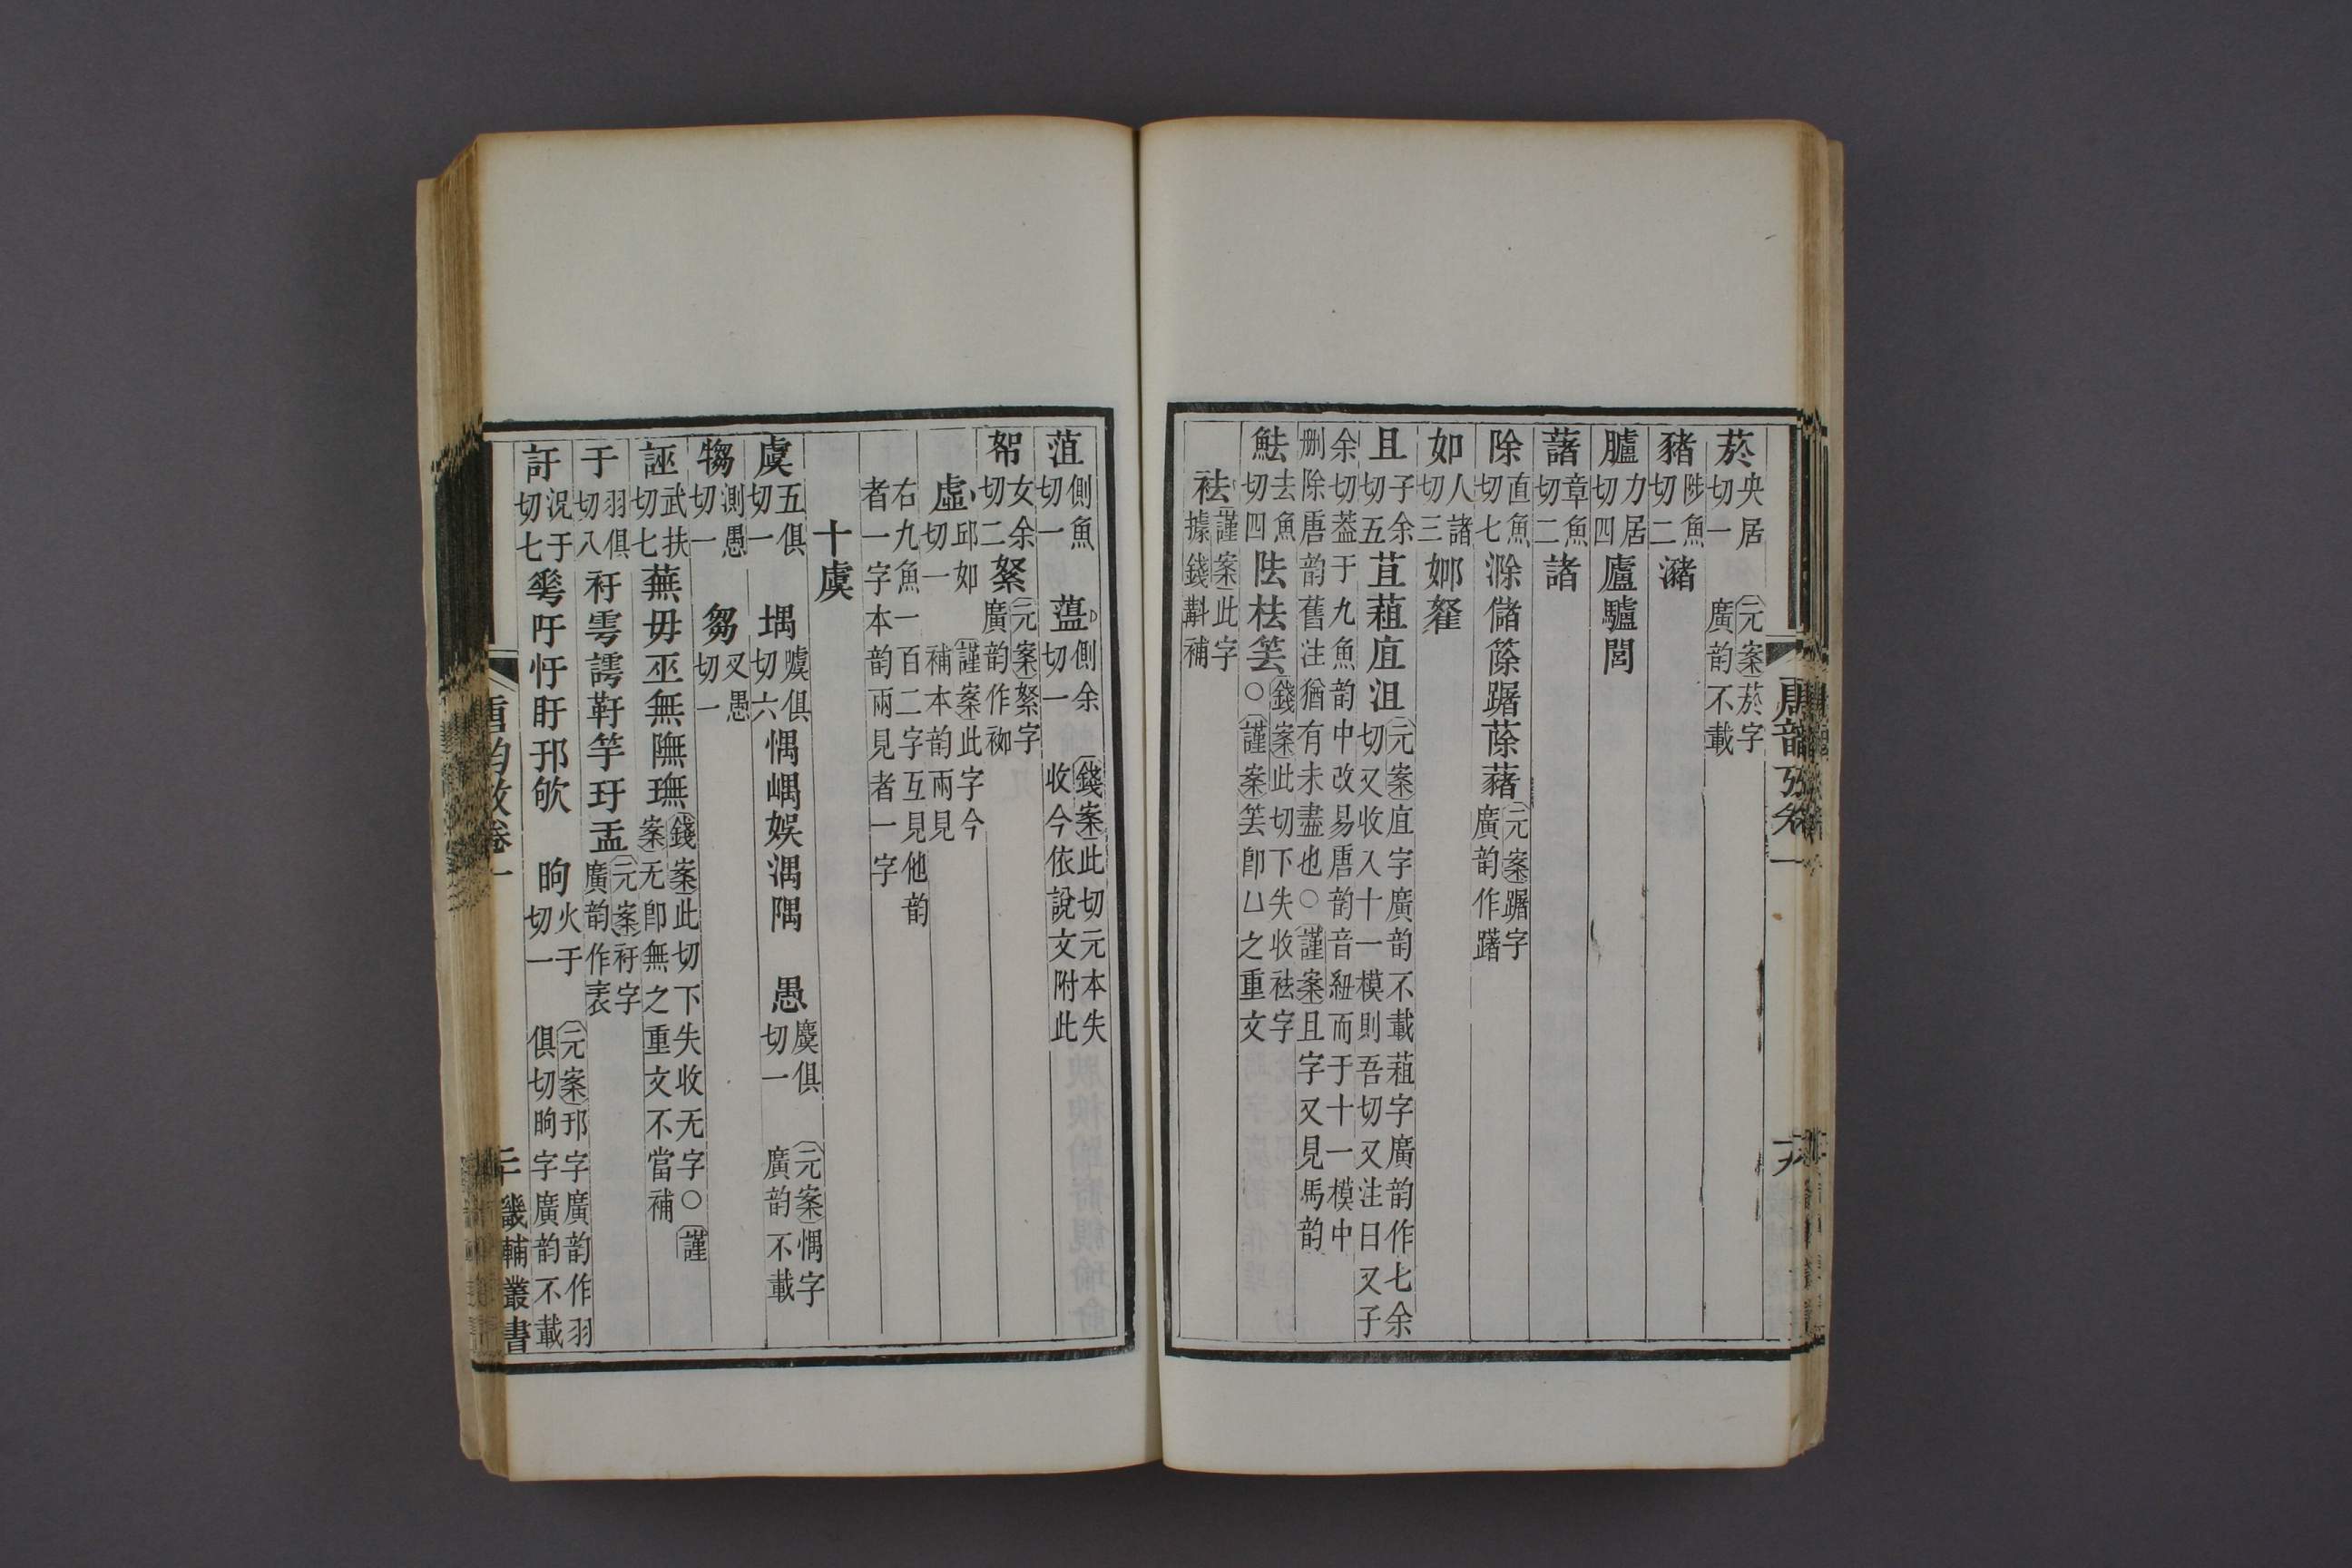 菸央居切一元案菸字廣韵不載
豬陟魚切二瀦
臚力居切四廬驢閭
藷章魚切二諸
除直魚切七滁儲篨躇蒢藸元案躇字廣韵作躇
如人諸切三䢴
且子余切五苴葅㡹沮元案㡹字廣韵不載葅字廣韵作七余切又收入十一模則吾切又注曰又子
余切葢于九魚韵中改易唐韵音紐而于十一模中刪除唐韵舊注猶有未盡也○謹案且字又見馬韵
魼去魚切四阹枯筁○錢案此切下失收袪字謹案筁卽凵之重文
袪謹案此字據錢斠補
菹側魚切一 蒀側余切一 錢案此切元本失收今依說文附此
帤女余切二絮元案絮字廣韵作袽
虛邱如切一 謹案此字今補本韵兩見
右九魚一百二字互見他韵者一字本韵兩見者一字
十虞
虞五俱切一 堣噳俱切六愄嵎娛湡隅 愚麌俱切一 元案愄字廣韵不載
犓測愚切一 芻叉愚切一
誣武扶切七蕪毋巫無膴璑錢案此切下失收无字○謹案无卽無之重文不當補
于羽俱切八衧雩謣靬竽玗盂元案衧字廣韵作衺
訏況于切七荂吁忬盱邘欨 昫火于切一 元案邘字廣韵作羽俱切昫字廣韵不載
唐韵攷卷一
畿輔叢書